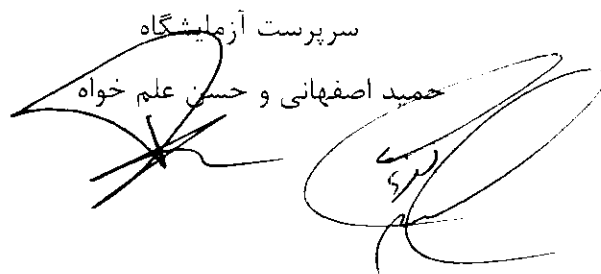 سرپرست آزمایشگاه
حمید اصفهانی و حسن علم خواه